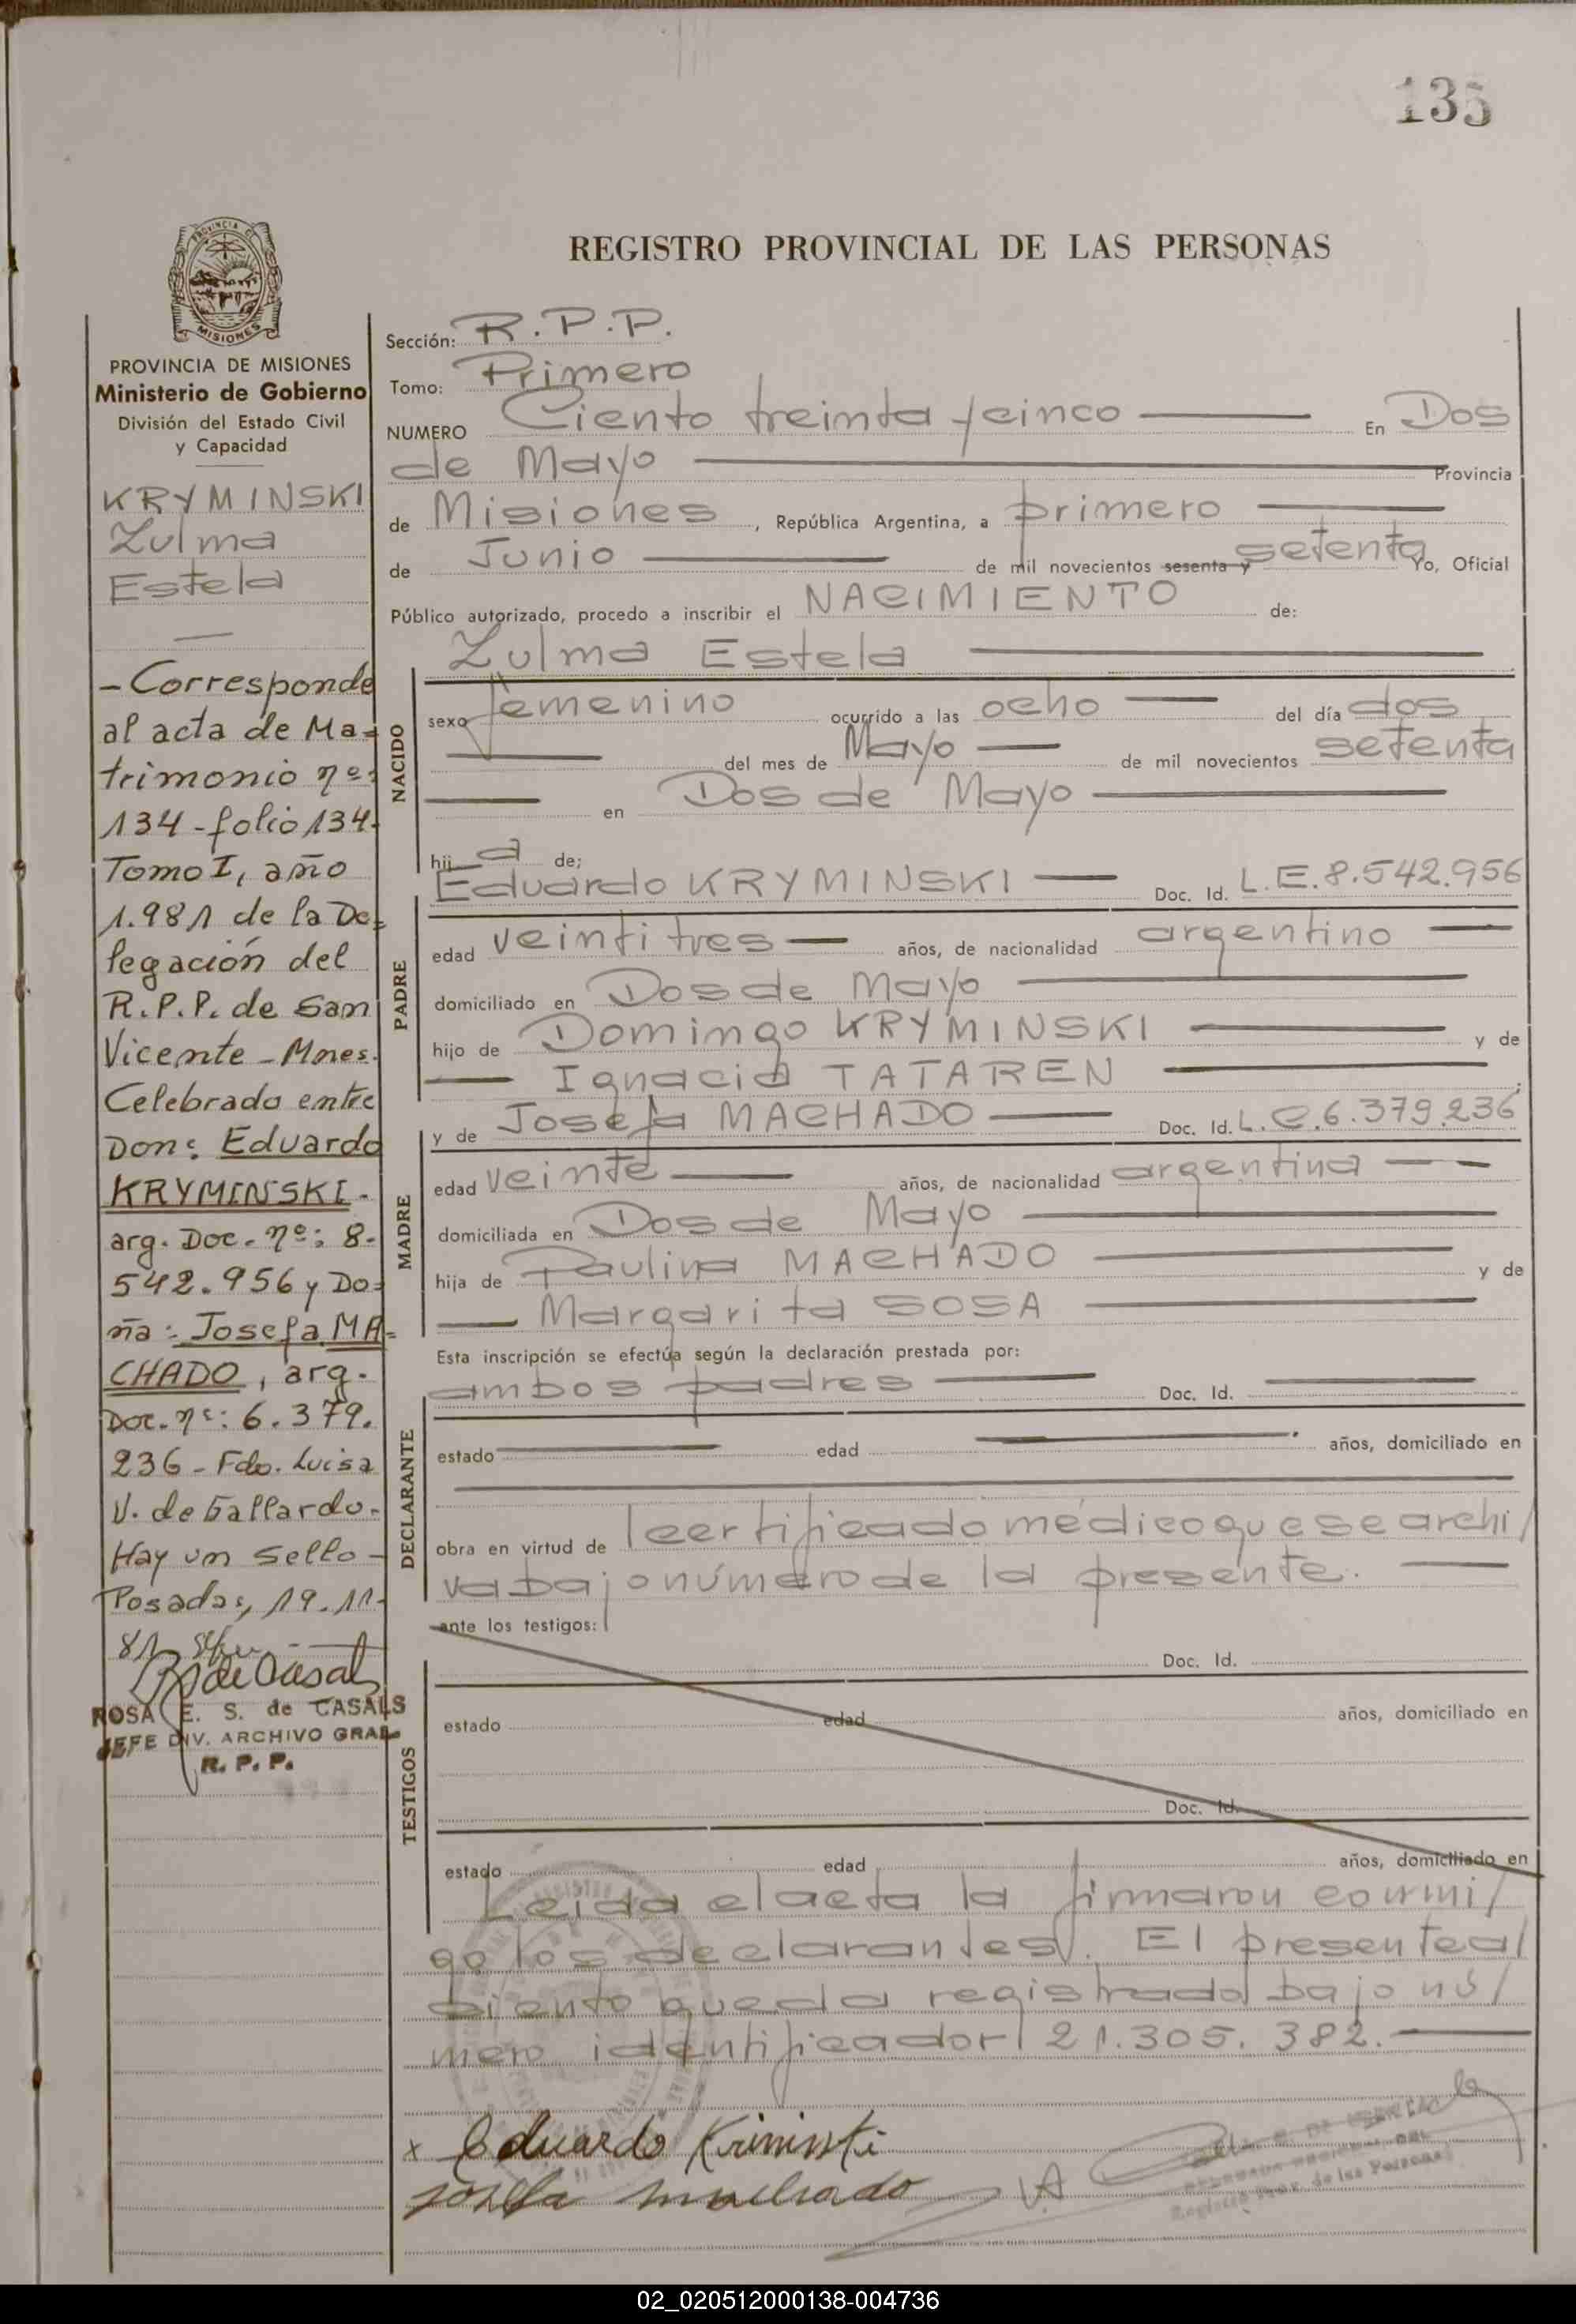 135
REGISTRO PROVINCIAL DE LAS PERSONAS
PROVINCIA DE
MISIONES
PROVINCIA DE MISIONES
Ministerio de Gobierno
División del Estado Civil
y Capacidad
KRYMINSKI
Zulma
Estela
- Corresponde
al acta de Ma=
trimonio nº:
134 - folio 134-
Tomo I, año
1.981 de la De=
legación del
R.P.P. de San
Vicente - Mnes.
Celebrado entre
Don: Eduardo
KRYMINSKI -
arg. Doc. nº: 8-
542.956 y Do=
ña: Josefa MA=
CHADO, arg.
Doc. nº: 6.379.
236 - Fdo. Luisa
V. de Gallardo -
Hay un sello -
Posadas, 19.11.
81
ROSA E. S. de CASALS
JEFE DIV. ARCHIVO GRAL
R. P. P.
Sección: R.P.P.
Tomo: Primero
NUMERO Ciento treinta y cinco En Dos
de Mayo Provincia
de Misiones, República Argentina, a primero
de Junio de mil novecientos sesenta y setenta Yo, Oficial
Público autorizado, procedo a inscribir el NACIMIENTO de:
Zulma Estela
NACIDO
sexo femenino ocurrido a las ocho del día dos
del mes de Mayo de mil novecientos setenta
en Dos de Mayo
hija de;
PADRE
Eduardo KRYMINSKI Doc. Id. L.E.8.542.956
edad veintitres años, de nacionalidad argentino
domiciliado en Dos de Mayo
hijo de Domingo KRYMINSKI y de
Ignacia TATAREN ;
MADRE
y de Josefa MACHADO Doc. Id. L.C.6.379.236
edad veinte años, de nacionalidad argentina
domiciliada en Dos de Mayo
hija de Paulina MACHADO y de
Margarita SOSA
Esta inscripción se efectúa según la declaración prestada por:
DECLARANTE
ambos padres Doc. Id.
estado edad años, domiciliado en
obra en virtud de certificado médico que se archi/
va bajo número de la presente.
ante los testigos:
TESTIGOS
Doc. Id.
estado edad años, domiciliado en
Doc. Id.
estado edad años, domiciliado en
Leida el acta la firmaron conmi/
go los declarantes. El presente a/
siento queda registrado bajo nú/
mero identificador 21.305.382.
x Eduardo Kriminski
Josefa Machado
02_020512000138-004736